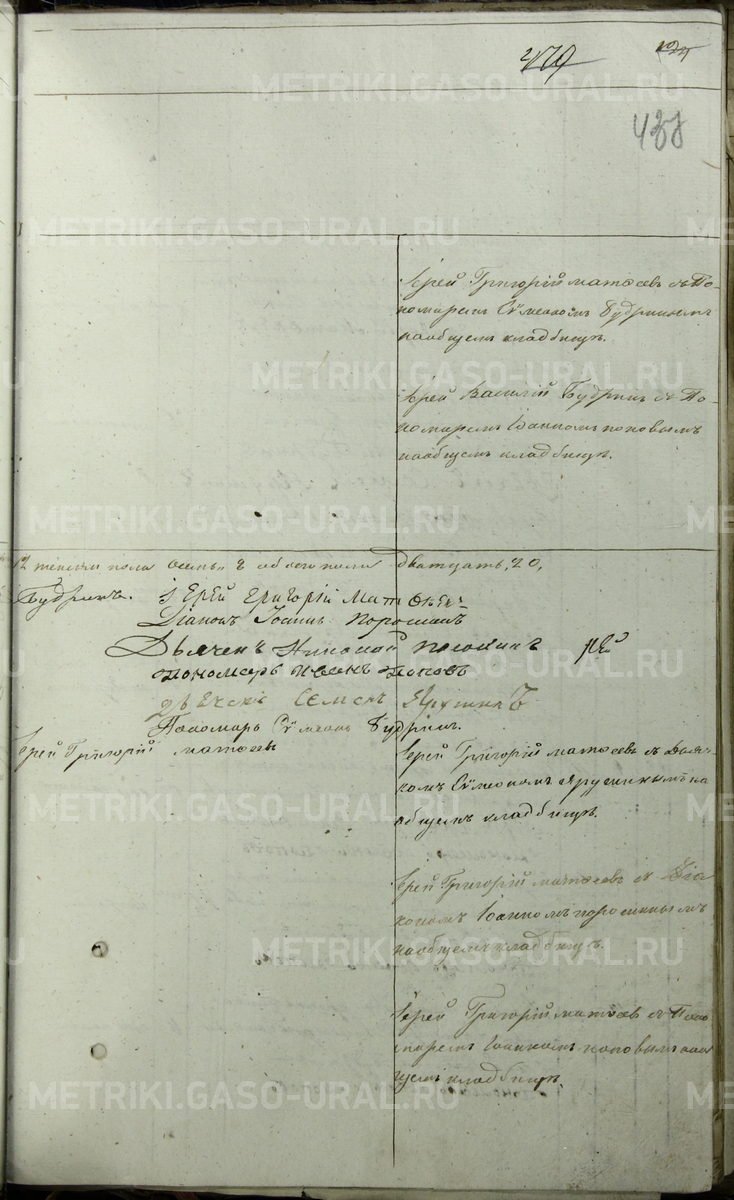 438
Іерей Григорій матѳеевъ съ По-
номаремъ Сѵмеономъ Будринымъ
наобщемъ кладбищѣ.
Іерей Василій Будринъ съ По-
номаремъ Іоанномъ поповымъ
наобщемъ кладбищѣ.
12 женска пола осмь, 8 обоего пола двадцать, 20,
Будринъ. іерей григорій Матѳѣев
Діаконъ Іоаннъ Порошинъ
Дьячекъ Николай
пономарь Иванъ Поповъ
дьячекъ Семенъ Ярушинъ
Пономарь Сѵмеонъ Будринъ.
Іерей Григорій матѳеевъ
Іерей Григорій матѳеевъ съ Дьяч-
комъ Сѵмеономъ Ярушинымъ на
общемъ кладбищѣ.
Іерей Григорій матѳеевъ съ Діа
кономъ Іоанномъ порошинымъ
наобщемъ кладбищѣ.
Іерей Григорій матѳеевъ съ Поно
маремъ Іоанномъ поповымъ наоб
щемъ кладбищѣ.
METRIKI.GASO-URAL.RU